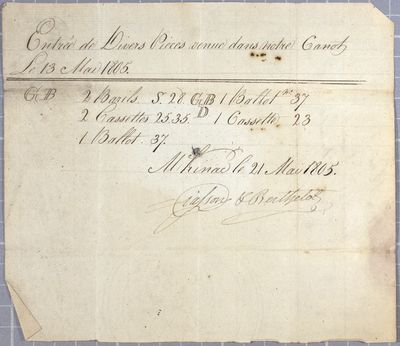 Entrée de Divers Pieces venue dans notre Canot
Le 13 Mai 1805.
GB 2 Barils S. 28. GB 1 Ballot No 37
2 Cassettes 25.35. D 1 Cassette 23
1 Ballot. 37.
Mkinac le 21 Mai 1805.
Giasson & Berthelot